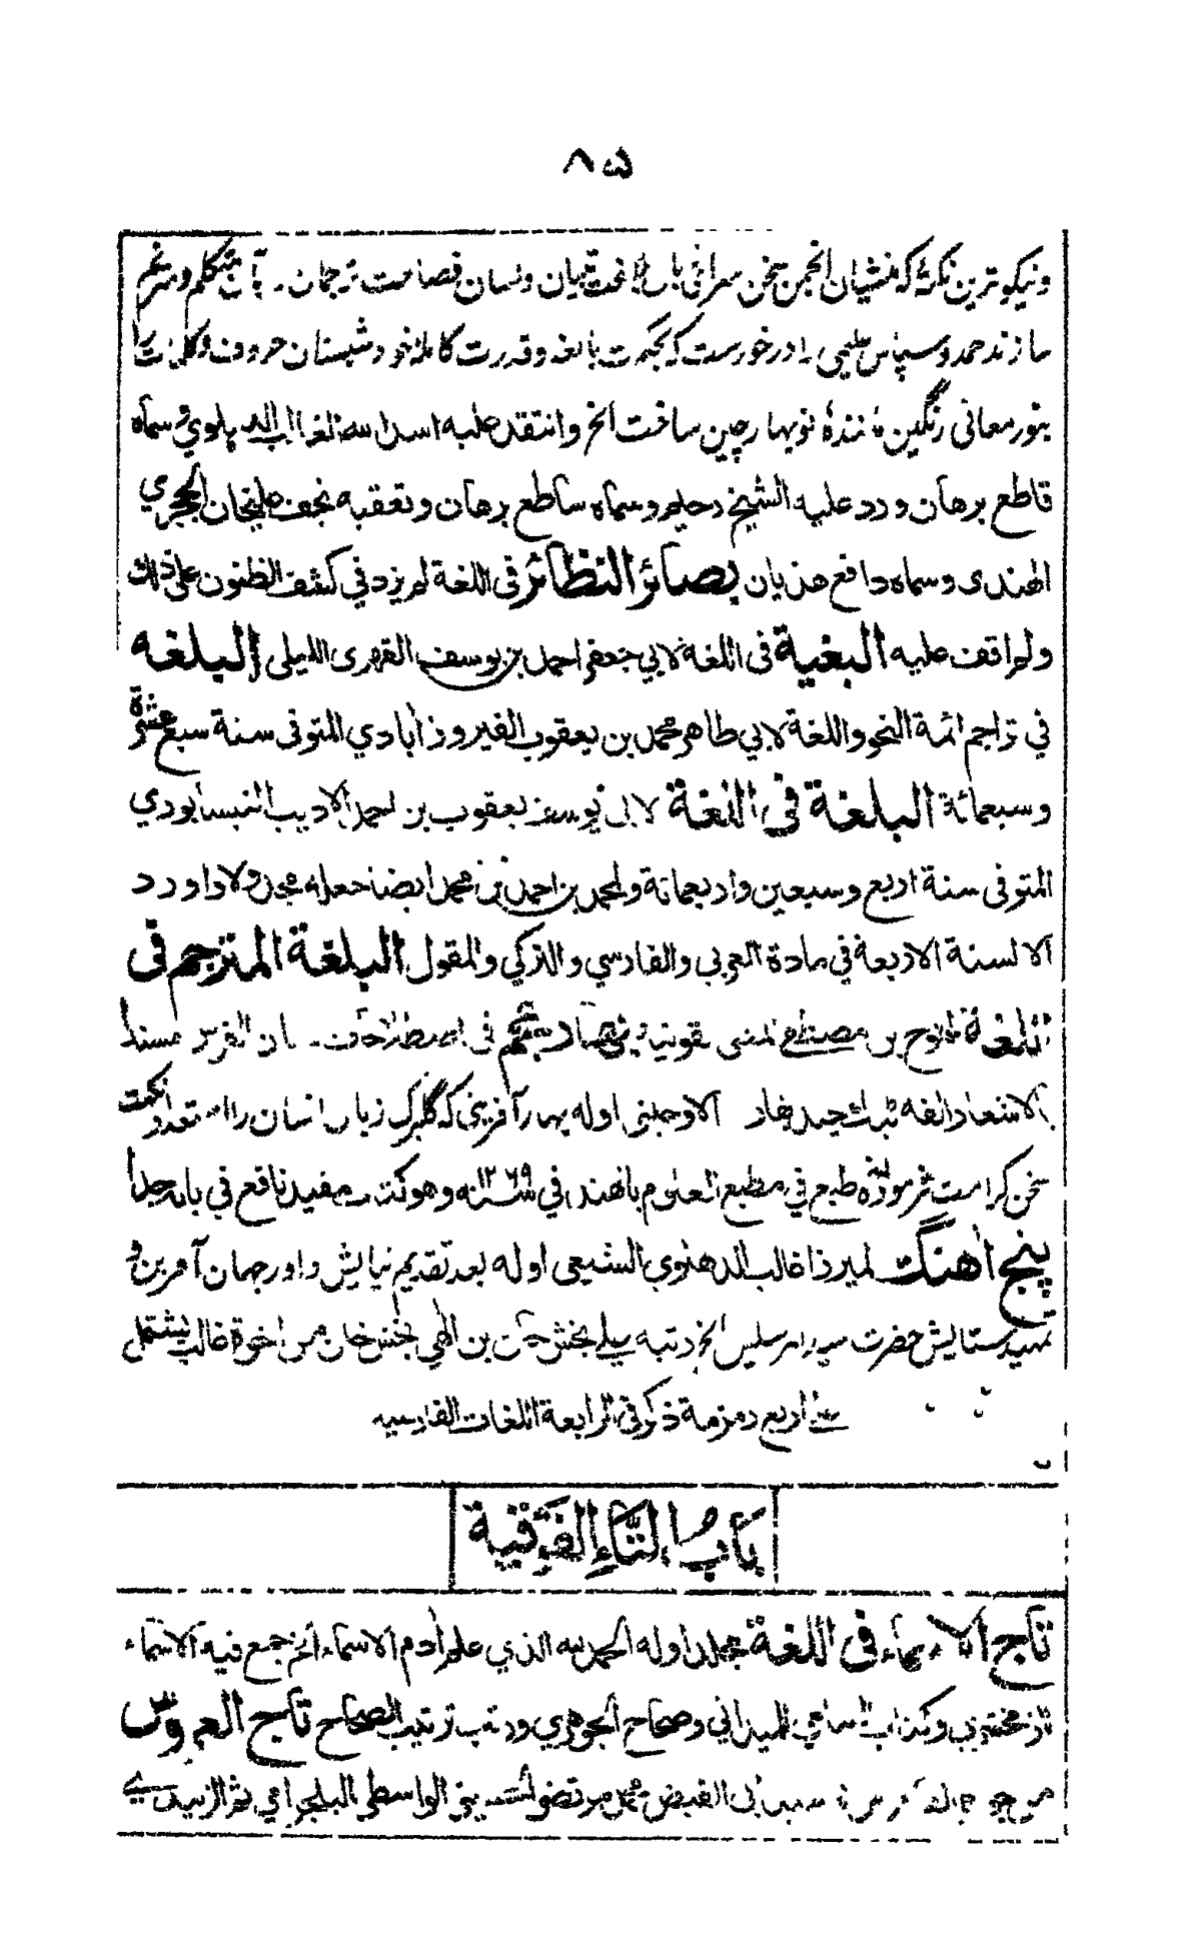 ٨٥
ونیکو ترین نکتهٔ که منشیان انجمن سخن سرائی بیان ولسان فصاحت ترجمان۔ بآن متکلم ومترنم
سازند حمد وسپاس در خورست که بحکمت بالغه وقدرت کامله خود شبستان حروف وکلمات را
بنور معانی رنگین مانندهٔ نوبهار چین ساخت الخ وانتقد عليه اسد الله الغالب الدهلوي وسماه
قاطع برهان ورد عليه الشيخ رحيم وسماه ساطع برهان وتعقبه نجف عليخان الجهجري
الهندى وسماه دافع هذيان بصائر النظائر فى اللغة لم يزد في كشف الظنون على ذلك
ولم اقف عليه البغية فى اللغة لابي جعفر احمد بن يوسف الفهرى اللبلى البلغه
في تراجم ائمة النحو واللغة لابي طاهر محمد بن يعقوب الفيروزآبادي المتوفى سنة سبع عشرة
وسبعمائة البلغة فى اللغة لابى يوسف يعقوب بن احمد الاديب النيسابوري
المتوفى سنة اربع وسبعين واربعمائة ولمحمد بن احمد بن محمد ايضا جعله مجدولا واورد
الالسنة الاربعة في مادة العربي والفارسي والتركي والمقول البلغة المترجم فى
اللغة بن مصطفى المفتى بقونية بهار عجم فى اصطلاحات الفرس مسندا
بالاشعار الفه چند بهار اوله بهار آفرينى كه گلبرگ زبان انسان را نكهت
سخن كرامت ثم مؤلفه طبع في مطبع العلوم بالهند في سنة ١٢٦٩ وهو كتاب مفيد نافع في بابه جدا
پنج اهنگ لميرزا غالب الدهلوي الشيعى اوله بعد تقديم نيايش داور جهان آفرين و
تمهيد ستايش حضرت سيد المرسلين الخ رتبه علي بخش بن الهي بخش خان من اخوة غالب يشتمل
على اربع زمزمة ذكر فى الرابعة اللغات الفارسيه
بَابُ التَّاءِ الفَوْقِيَة
تاج الاسماء فى اللغة مجلد اوله الحمد لله الذي علم ادم الاسماء الخ جمع فيه الاسماء
وكتاب السامي للميداني وصحاح الجوهري ورتب ترتيب الصحاح تاج العروس
من جواهر القاموس ابى الفيض محمد مرتضى الحسينى الواسطي البلجرامي ثم الزبيدى